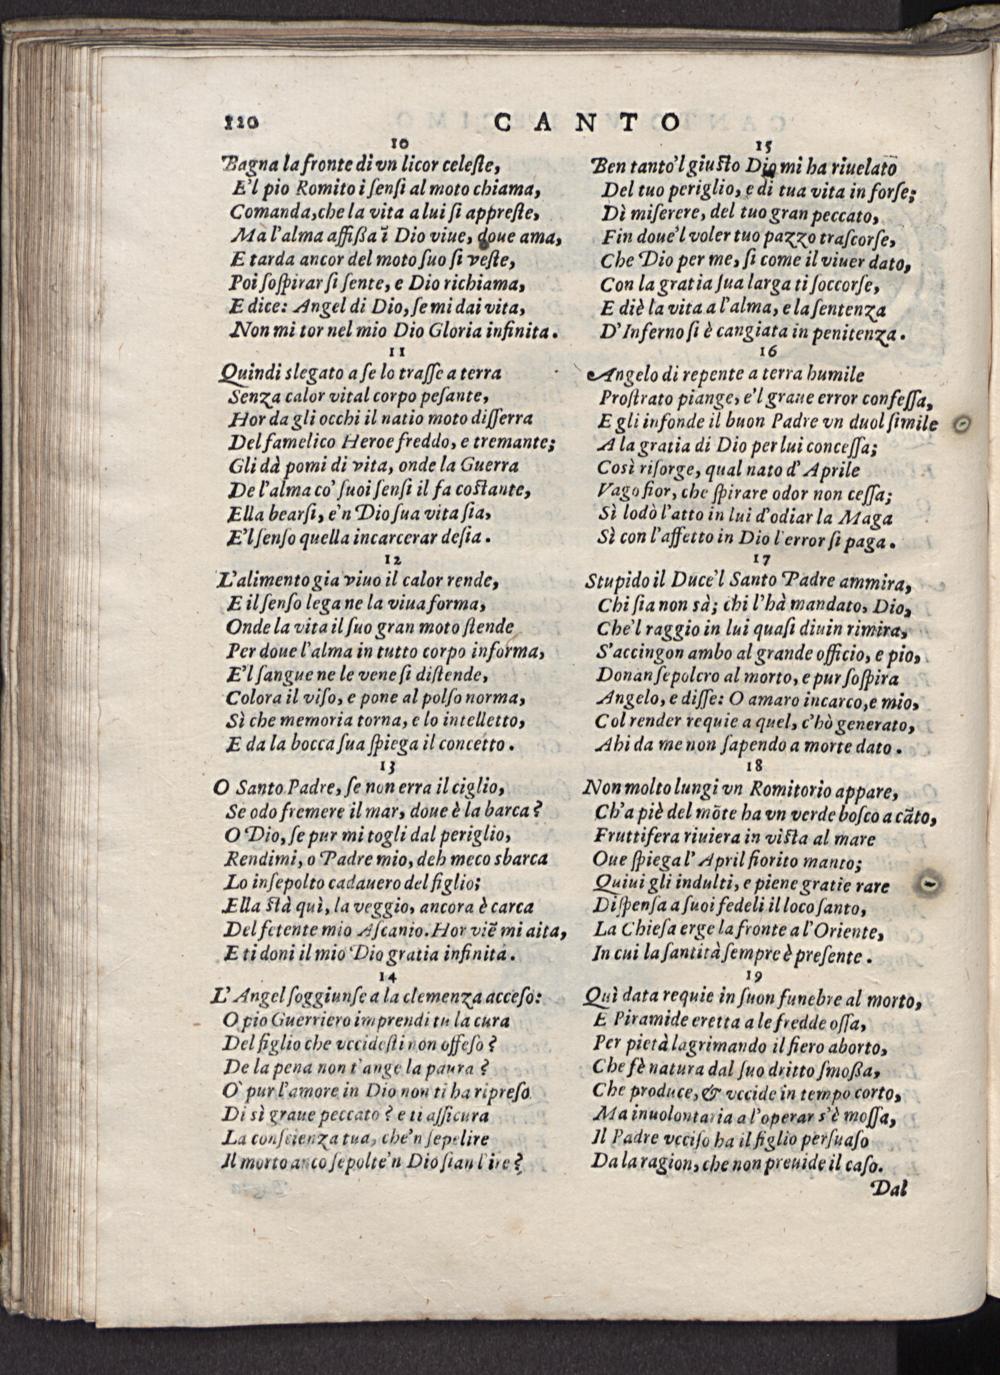 120
CANTO
10
Bagna la fronte di vn licor celeſte,
E'l pio Romito i ſenſi al moto chiama,
Comanda, che la vita a lui ſi appreſte,
Ma l'alma affiſſa ĩ Dio viue, doue ama,
E tarda ancor del moto ſuo ſi veſte,
Poi ſoſpirar ſi ſente, e Dio richiama,
E dice: Angel di Dio, ſe mi dai vita,
Non mi tor nel mio Dio Gloria infinita.
11
Quindi slegato a ſe lo traſſe a terra
Senza calor vital corpo peſante,
Hor da gli occhi il natio moto diſſerra
Del famelico Heroe freddo, e tremante;
Gli dà pomi di vita, onde la Guerra
De l'alma co' ſuoi ſenſi il fa coſtante,
Ella bearſi, e'n Dio ſua vita ſia,
E'l ſenſo quella incarcerar deſia.
12
L'alimento gia viuo il calor rende,
E il ſenſo lega ne la viua forma,
Onde la vita il ſuo gran moto ſtende
Per doue l'alma in tutto corpo informa,
E'l ſangue ne le vene ſi diſtende,
Colora il viſo, e pone al polſo norma,
Sì che memoria torna, e lo intelletto,
E da la bocca ſua ſpiega il concetto.
13
O Santo Padre, ſe non erra il ciglio,
Se odo fremere il mar, doue è la barca?
O Dio, ſe pur mi togli dal periglio,
Rendimi, o Padre mio, deh meco sbarca
Lo inſepolto cadauero del figlio;
Ella ſtà quì, la veggio, ancora è carca
Del fetente mio Aſcanio. Hor viẽ mi aita,
E ti doni il mio Dio gratia infinita.
14
L'Angel ſoggiunſe a la clemenza acceſo:
O pio Guerriero imprendi tu la cura
Del figlio che vccideſti non offeſo?
De la pena non t'ange la paura?
O' pur l'amore in Dio non ti ha ripreſo
Di sì graue peccato? e ti aſſicura
La conſcienza tua, che'n ſepelire
Il morto anco ſepolte'n Dio ſian l'ire?
15
Ben tanto'l giuſto Dio mi ha riuelato
Del tuo periglio, e di tua vita in forſe;
Dì miſerere, del tuo gran peccato,
Fin doue'l voler tuo pazzo traſcorſe,
Che Dio per me, ſi come il viuer dato,
Con la gratia ſua larga ti ſoccorſe,
E diè la vita a l'alma, e la ſentenza
D'Inferno ſi è cangiata in penitenza.
16
Angelo di repente a terra humile
Proſtrato piange, e'l graue error confeſſa,
E gli infonde il buon Padre vn duol ſimile
A la gratia di Dio per lui conceſſa;
Così riſorge, qual nato d'Aprile
Vago fior, che ſpirare odor non ceſſa;
Sì lodò l'atto in lui d'odiar la Maga
Sì con l'affetto in Dio l'error ſi paga.
17
Stupido il Duce'l Santo Padre ammira,
Chi ſia non sà; chi l'hà mandato, Dio,
Che'l raggio in lui quaſi diuin rimira,
S'accingon ambo al grande officio, e pio,
Donan ſepolcro al morto, e pur ſoſpira
Angelo, e diſſe: O amaro incarco, e mio,
Col render requie a quel, c'hò generato,
Ahi da me non ſapendo a morte dato.
18
Non molto lungi vn Romitorio appare,
Ch'a piè del mõte ha vn verde boſco a cãto,
Fruttifera riuiera in viſta al mare
Oue ſpiega l'April fiorito manto;
Quiui gli indulti, e piene gratie rare
Diſpenſa a ſuoi fedeli il loco ſanto,
La Chieſa erge la fronte a l'Oriente,
In cui la ſantità ſempre è preſente.
19
Quì data requie in ſuon funebre al morto,
E Piramide eretta a le fredde oſſa,
Per pietà lagrimando il fiero aborto,
Che fè natura dal ſuo dritto ſmoſſa,
Che produce, & vccide in tempo corto,
Ma inuolontaria a l'operar s'è moſſa,
Il Padre vcciſo ha il figlio perſuaſo
Da la ragion, che non preuide il caſo.
Dal